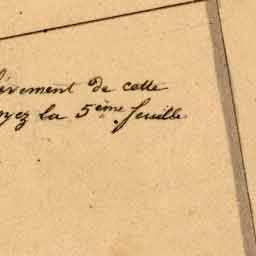 èvement de cette
oyez la 5ème feuille